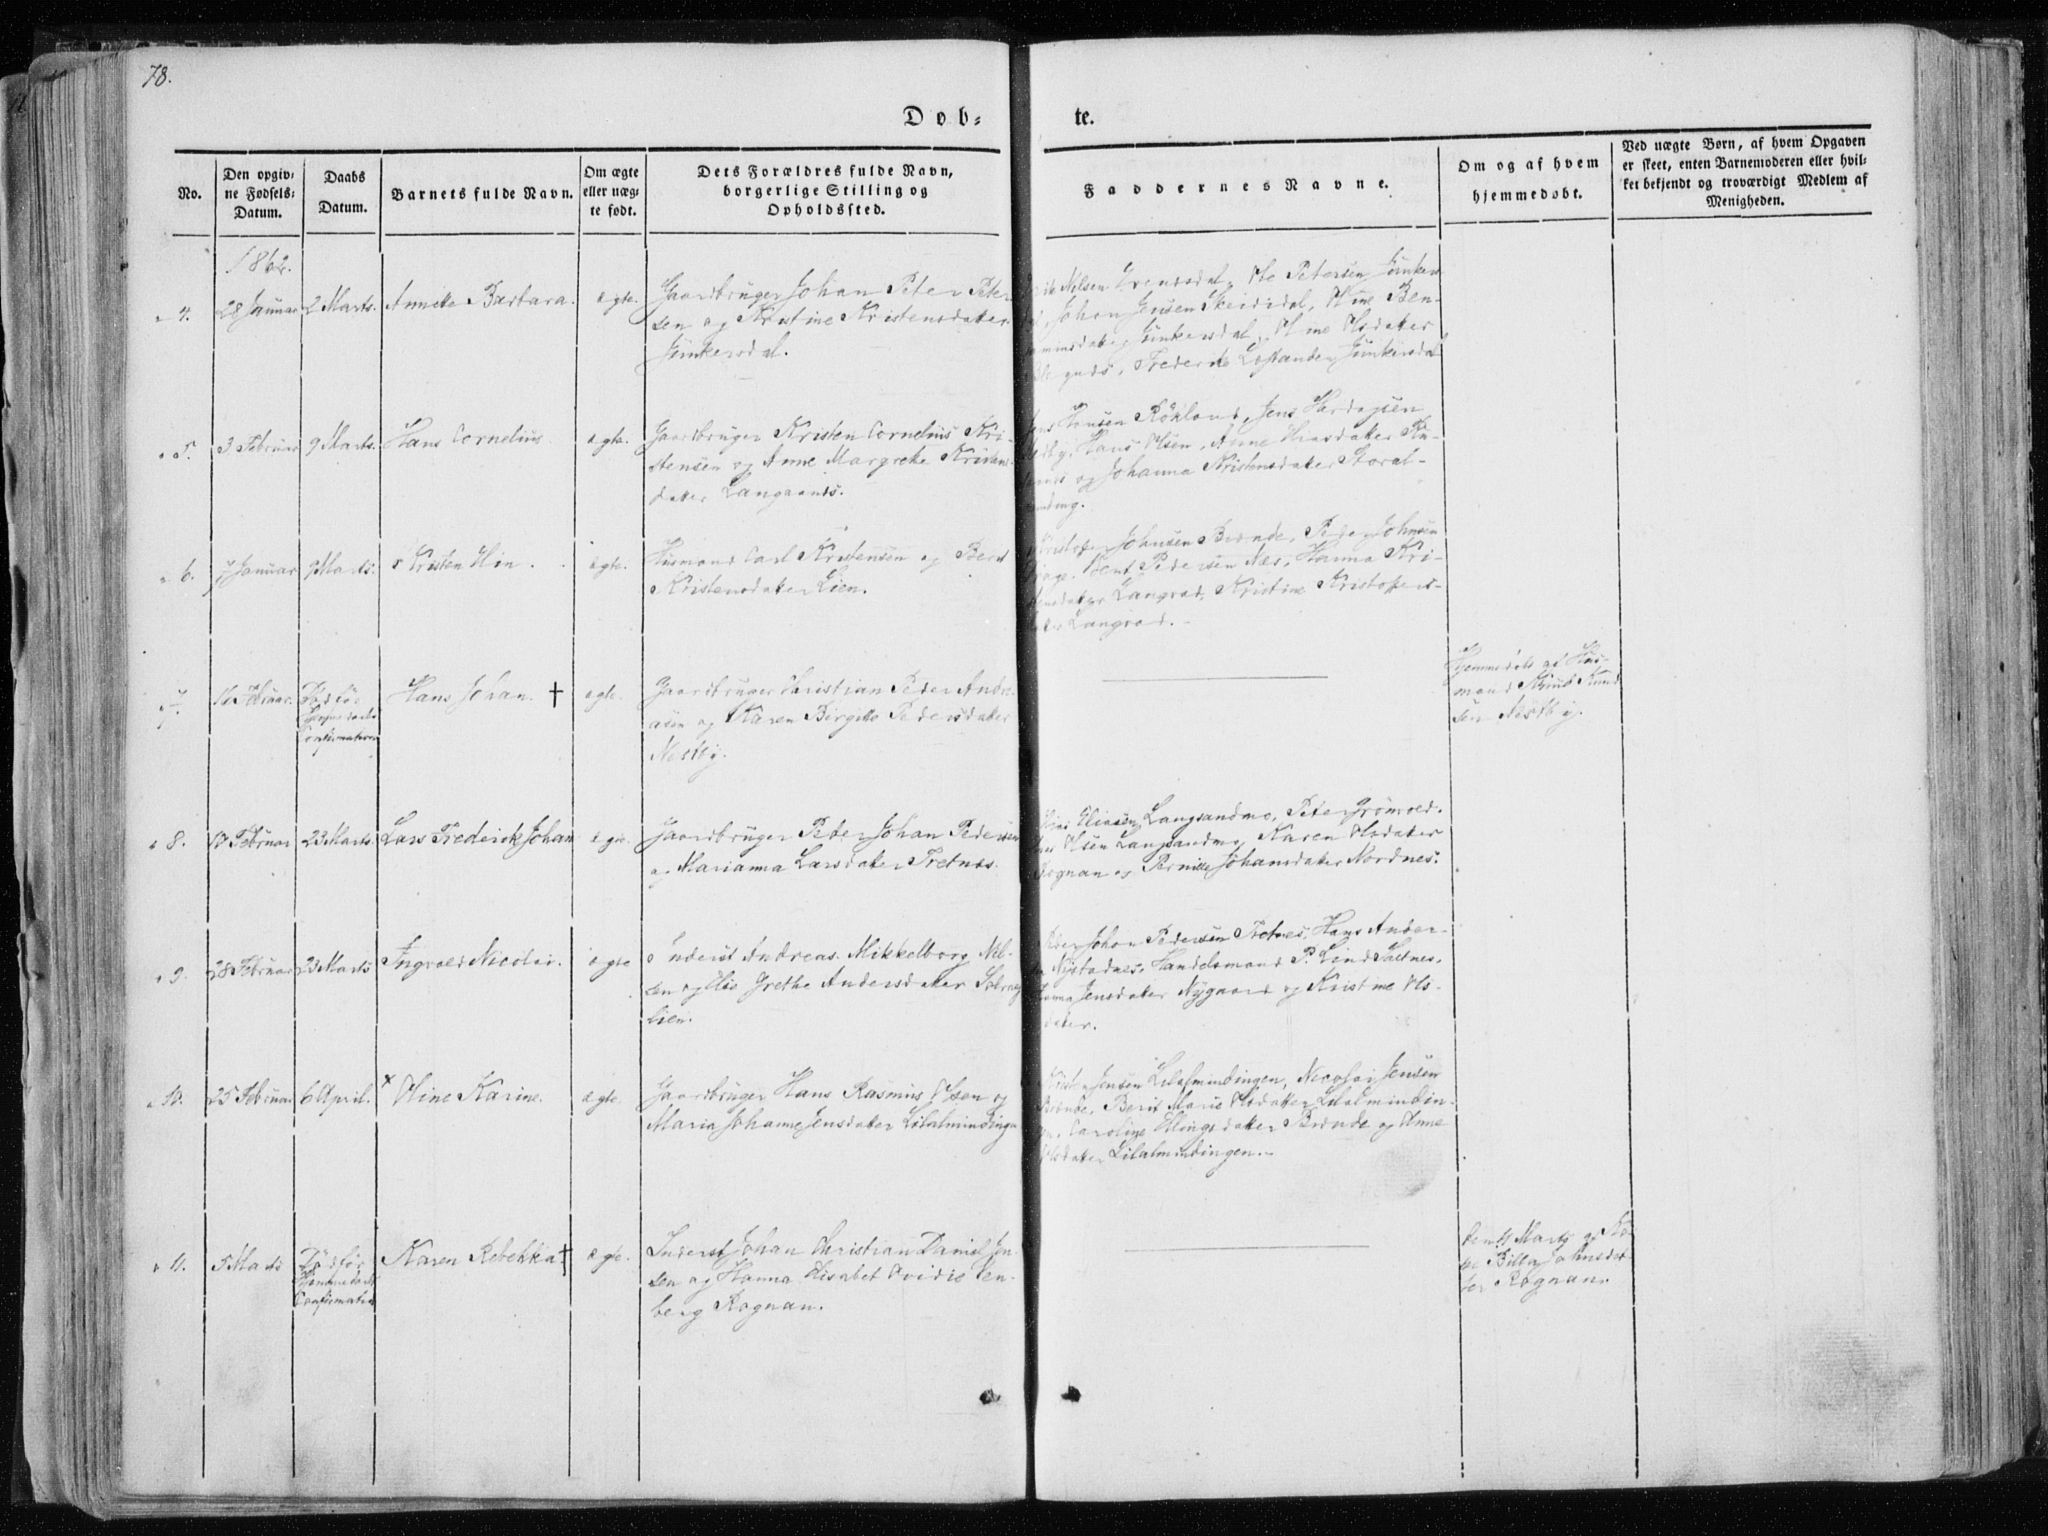 78.
Døb-
te.
No.
Den opgiv-
ne Fødsels-
Datum.
Daabs
Datum.
Barnets fulde Navn.
Om ægte
eller uæg-
te født.
Dets Forældres fulde Navn,
borgerlige Stilling og
Opholdssted.
Faddernes Navne.
Om og af hvem
hjemmedøbt.
Ved uægte Børn, af hvem Opgaven
er skeet, enten Barnemoderen eller hvil-
ket bekjendt og troværdigt Medlem af
Menigheden.
1862.
4.
28 Januar
2 Marts.
Annette Barbara.
ægte.
Gaardbruger Johan Peter Peter-
sen og Kristine Kristensdatter
Junkersdal.
Nilsen Evensdal, Ole Petersen Junkers-
Johan Jensen Skeididal, Oline Ben-
Junkersdal, Oline Olsdatter
Frederik Junkersdal
5.
3 Februar
9 Marts.
Hans Cornelius.
ægte.
Gaardbruger Kristen Cornelius Kri-
stensen og Anne Margrethe Kristens-
datter Langaands.
Hansen Røkland, Jens Hardagsen
Hans Olsen, Anne
og Johanna Kristensdatter Storal-
minding.
6.
7 Januar
9 Marts.
Kristen Hin.
ægte.
Husmand Carl Kristensen og Berit
Kristensdatter Lien.
Kristoffer Johnsen Brænde, Peder Johnsen
Bent Pedersen Næs, Hanna Kri-
stensdatter Langrad, Kristine Kristoffers-
datter Langrad.
7.
16 Februar.
Død før
Hjemmedaabs
Confirmation
Hans Johan. †
ægte.
Gaardbruger Christian Peder Andre-
asen og Karen Birgitte Pedersdatter
Nestby.
Hjemmedøbt af Hus-
mand Knud Knud-
sen Nestby.
8.
17 Februar
23 Marts.
Lars Frederik Johan
ægte.
Gaardbruger Peder Johan Pedersen
og Marianna Larsdatter Tretnæs.
Eliasen Langsandmo, Peter Grønvold.
Olsen Langsandmo, Karen Olsdatter
Rognan og Pernille Johansdatter Nordnes.
9.
28 Februar
23 Marts
Ingvald Nicolai.
ægte
Inderst Andreas Mikkelborg Nil-
sen og Else Grethe Andersdatter
lien.
Peder Johan Pedersen Tretnes, Hans Ander-
sen Nystadnes, Handelsmand P. Lind Saltnes,
Hanna Jensdatter Nygaard og Kristine Ols-
datter.
10.
25 Februar
6 April.
× Oline Karine.
ægte.
Gaardbruger Hans Rasmus Olsen og
Maria Johanne Jensdatter Lilalmindingen
Jensen Lilalmindingen, Nicolai Jensen
Brænde, Berit Marie Olsdatter Lilalmindin-
gen, Caroline Ellingsdatter Brænde og Anne
Olsdatter Lilalmindingen.
11.
5 Marts
Død før
Hjemmedaabs
Confirmation
Karen Rebekka †
ægte.
Inderst Johan Christian Daniel Jen-
sen og Hanna Elisabet Ovidie Ven-
berg Rognan.
den 9 Marts af
Billa Johnsdat-
ter Rognan.